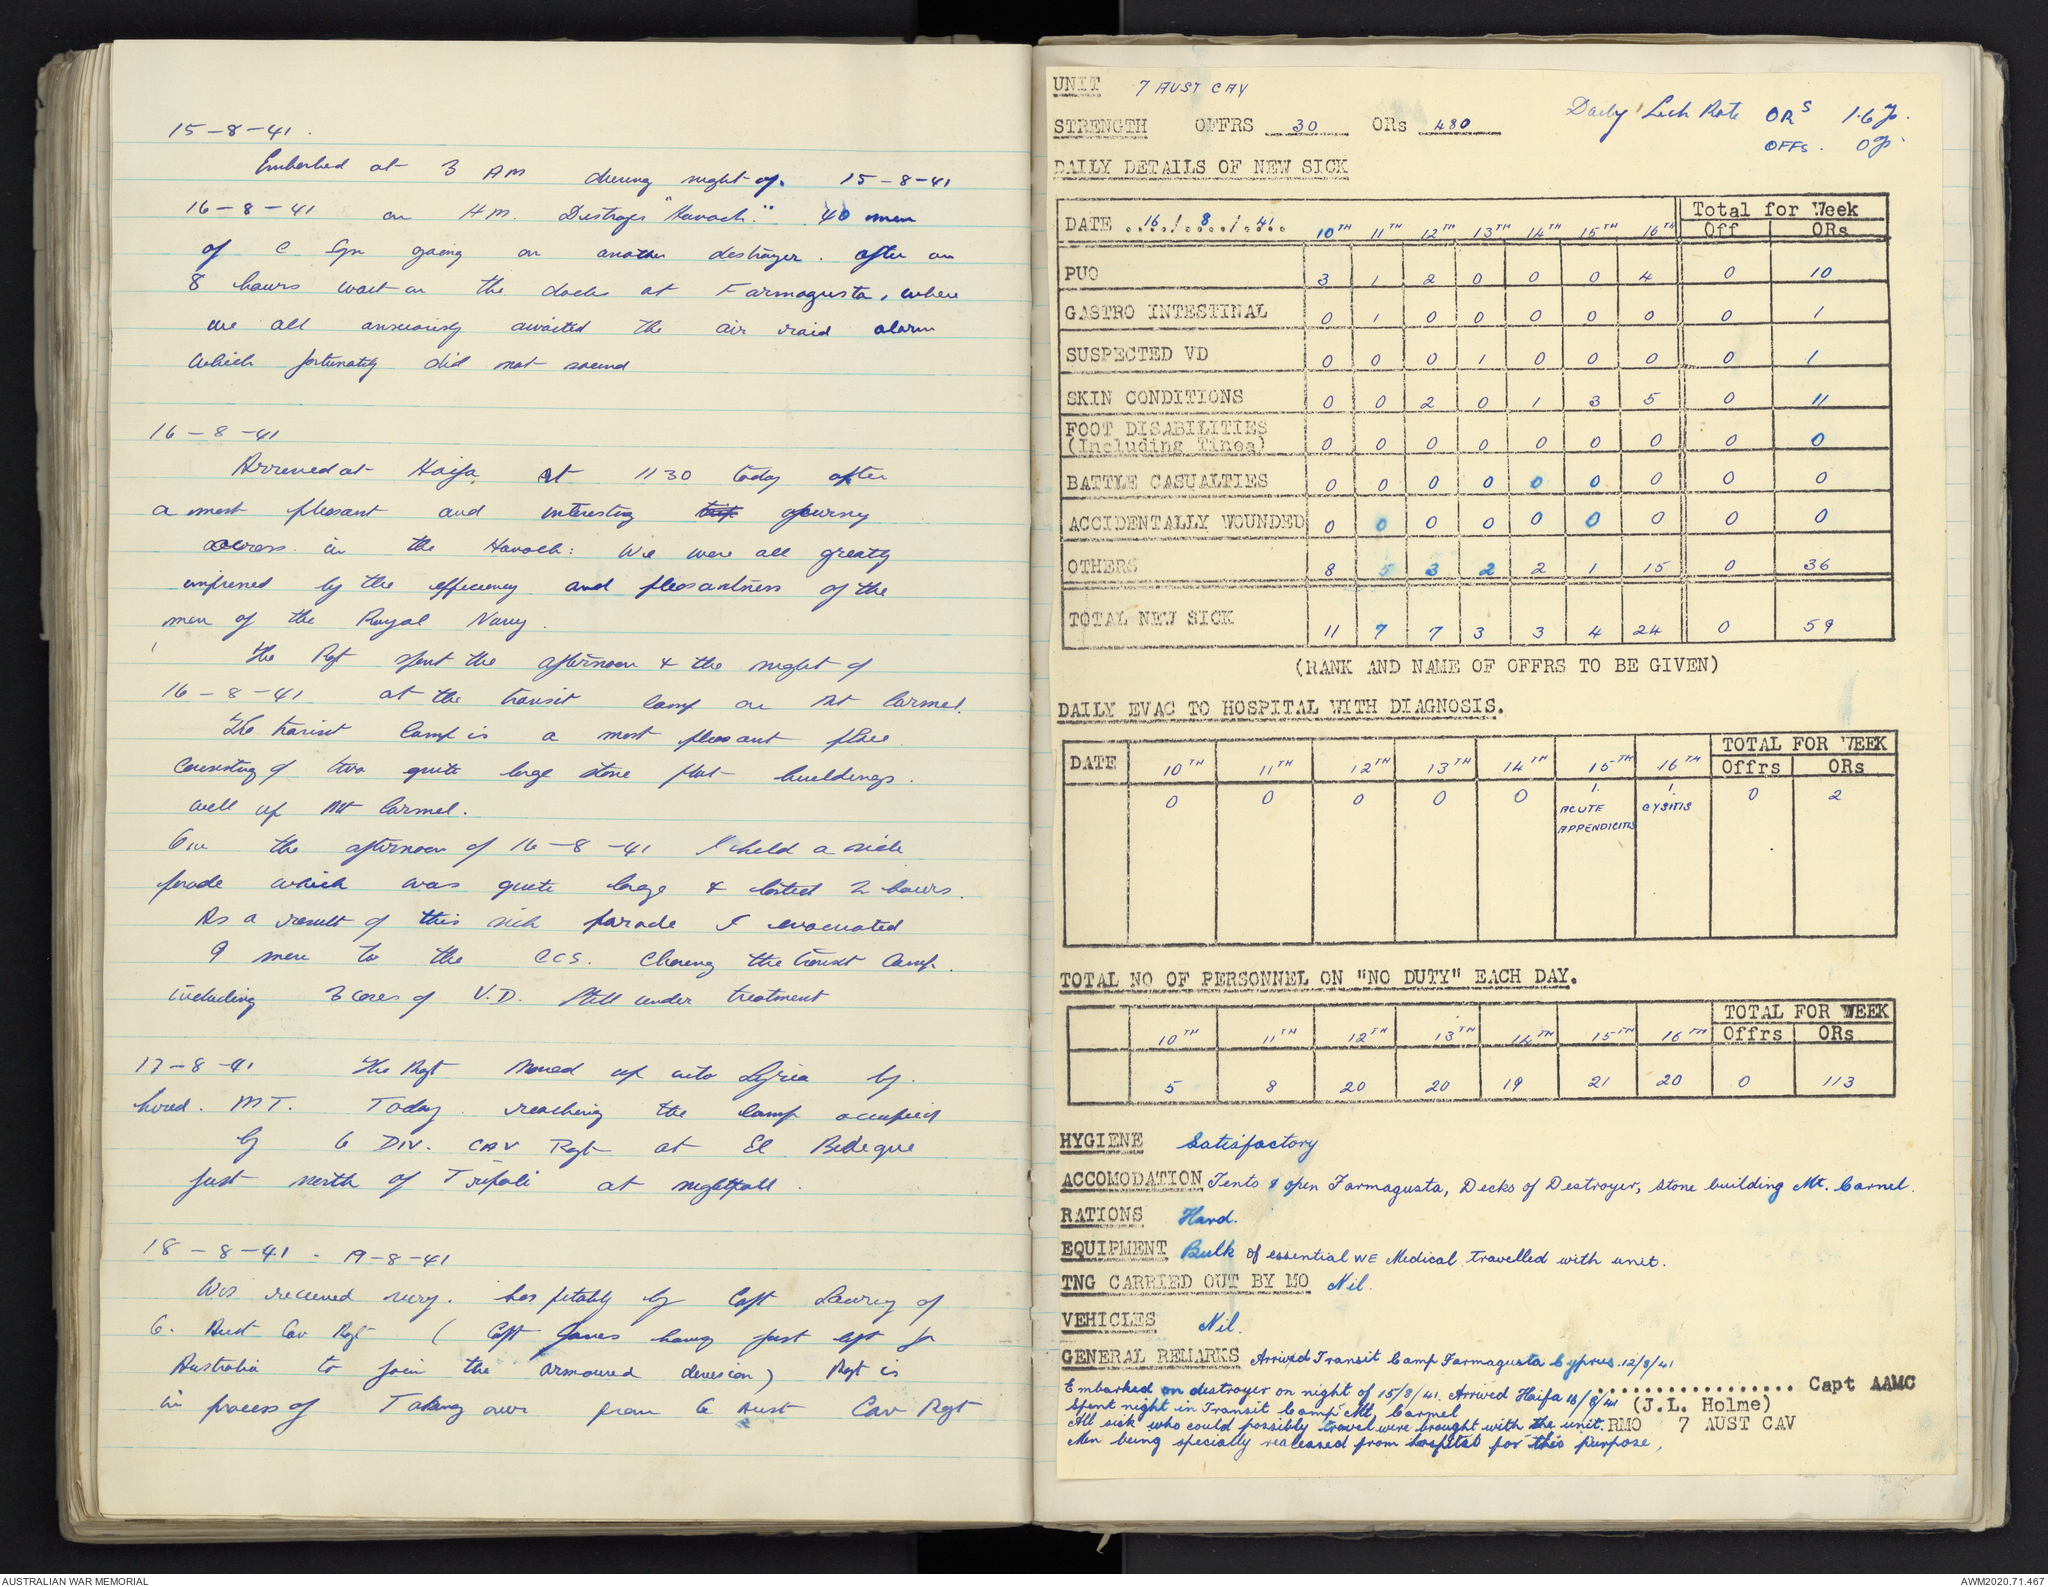 15-8-41.
Embarked at 3 AM during night of. 15-8-41
16-8-41 on H.M. Destroyer "Havock." 40 men
of C Sqn going on another destroyer. after an
8 hours wait on the docks at Farmagusta, where
we all anxiously awaited the air raid alarm
which fortunately did not sound
16-8-41
Arrived at Haifa at 1130 today after
a most pleasant and interesting trip journey
across in the Havock: We were all greatly
impressed by the efficiency and pleasantness of the
men of the Royal Navy.
The Rgt spent the afternoon & the night of
16-8-41 at the transit camp on Mt Carmel.
The transit Camp is a most pleasant place
consisting of two quite large stone flat buildings.
well up Mt Carmel.
On the afternoon of 16-8-41 I held a sick
parade which was quite large & lasted 2 hours.
As a result of this sick parade I evacuated
9 men to the CCS. the transit Camp.
including 3 cases of V.D. still under treatment
17-8-41 The Rgt Moved up into Syria by.
hired. MT. Today. reaching the camp occupied
by 6 DIV. CAV Rgt at El
just north of Tripoli at nightfall.
18-8-41 - 19-8-41
Was received very. hospitably by Capt Lawry of
6. Aust Cav Rgt (Capt Jones having just left for
Australia to join the armoured division) Rgt is
in process of Taking over from 6 Aust Cav Rgt
UNIT 7 AUST CAV
STRENGTH OFFRS 30 ORs 480
Daily Sick Rate ORS 1.6%.
OFFs. 0%.
DAILY DETAILS OF NEW SICK
DATE 16/8/41 10TH 11TH 12TH 13TH 14TH 15TH 16TH Total for Week
Off ORs
PUO 3 1 2 0 0 0 4 0 10
GASTRO INTESTINAL 0 1 0 0 0 0 0 0 1
SUSPECTED VD 0 0 0 1 0 0 0 0 1
SKIN CONDITIONS 0 0 2 0 1 3 5 0 11
FOOT DISABILITIES
(Including Tinea) 0 0 0 0 0 0 0 0 0
BATTLE CASUALTIES 0 0 0 0 0 0 0 0 0
ACCIDENTALLY WOUNDED 0 0 0 0 0 0 0 0 0
OTHERS 8 5 3 2 2 1 15 0 36
TOTAL NEW SICK 11 7 7 3 3 4 24 0 59
(RANK AND NAME OF OFFRS TO BE GIVEN)
DAILY EVAC TO HOSPITAL WITH DIAGNOSIS.
TOTAL FOR WEEK
DATE 10TH 11TH 12TH 13TH 14TH 15TH 16TH Offrs ORs
0 0 0 0 0 1. 1. 0 2
ACUTE CYSITIS
APPENDICITIS
TOTAL NO OF PERSONNEL ON "NO DUTY" EACH DAY.
TOTAL FOR WEEK
10TH 11TH 12TH 13TH 14TH 15TH 16TH Offrs ORs
5 8 20 20 19 21 20 0 113
HYGIENE Satisfactory
ACCOMODATION Tents & open Farmagusta, Decks of Destroyer, Stone building Mt. Carmel.
RATIONS Hard.
EQUIPMENT Bulk of essential WE Medical travelled with unit.
TNG CARRIED OUT BY MO Nil.
VEHICLES Nil.
GENERAL REMARKS Arrived Transit Camp Farmagusta Cyprus. 12/8/41
Embarked on destroyer on night of 15/8/41. Arrived Haifa 16/8/41
Spent night in Transit Camp Mt Carmel
All sick who could possibly travel were brought with the unit.
Men being specially realeased from hospital for this purpose,
.................. Capt AAMC
(J.L. Holme)
RMO 7 AUST CAV
AUSTRALIAN WAR MEMORIAL
AWM2020.71.467